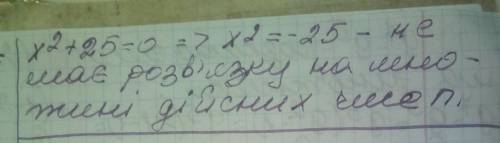 x²+25=0 => x²=-25 - не
має розв'язку на мно-
жині дійсних чисел.